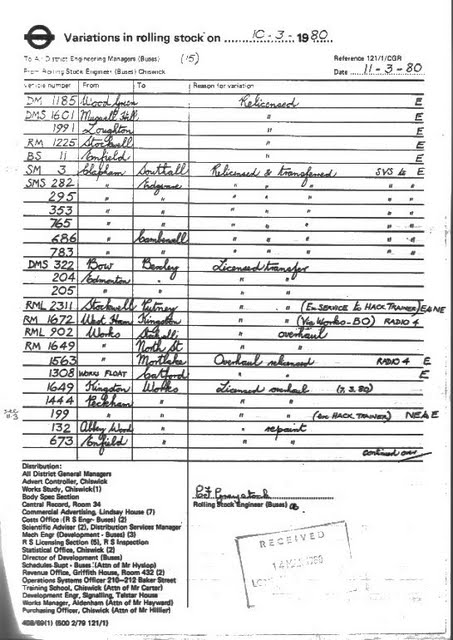 Variations in rolling stock on 10 - 3 - 1980
To All District Engineering Managers (Buses) (15) Reference 121/1/CGR
From Rolling Stock Engineer (Buses) Chiswick Date 11 - 3 - 80
Vehicle number From To Reason for variation
DM 1185 Wood Green Relicensed E
DMS 1601 Muswell Hill " E
1991 Loughton " E
RM 1225 Stockwell " E
BS 11 Enfield " E
SM 3 Clapham Southall Relicensed & transferred SVS to E
SMS 282 " Edgware " " " " "
295 " " " " " " "
353 " " " " " " "
765 " " " " " " "
686 " Camberwell " " " " "
783 " " " " " " "
DMS 322 Bow Bexley Licensed transfer
204 Edmonton " " "
205 " " " "
RML 2311 Stockwell Putney " " (Ex-SERVICE to HACK TRAINER) E&NE
RM 1672 West Ham Kingston " " (Via Works - BO) RADIO 4
RML 902 Works " overhaul
RM 1649 " North St " "
1563 " Mortlake Overhaul relicensed RADIO 4 E
1308 WORKS FLOAT Catford " " E
1649 Kingston Works Licensed overhaul (7.3.80)
1444 Peckham " " "
199 " " " " (ex HACK TRAINER) NE&E
132 Abbey Wood " " repaint
673 Enfield " " "
continued over
Distribution:
All District General Managers
Advert Controller, Chiswick
Works Study, Chiswick(1)
Body Spec Section
Central Record, Room 34
Commercial Advertising, Lindsay House (7)
Costs Office (R S Engr- Buses) (2)
Scientific Adviser (2), Distribution Services Manager
Mech Engr (Development - Buses) (3)
R S Licensing Section (5), R S Inspection
Statistical Office, Chiswick (2)
Director of Development (Buses)
Schedules Supt - Buses (Attn of Mr Hyslop)
Revenue Office, Griffith House, Room 432 (2)
Operations Systems Officer 210-212 Baker Street
Training School, Chiswick (Attn of Mr Carter)
Development Engr, Signalling, Telstar House
Works Manager, Aldenham (Attn of Mr Hayward)
Purchasing Officer, Chiswick (Attn of Mr Hillier)
Rolling Stock Engineer (Buses)
RECEIVED
14 MAR 1980
468/69(1) (500 2/79 121/1)